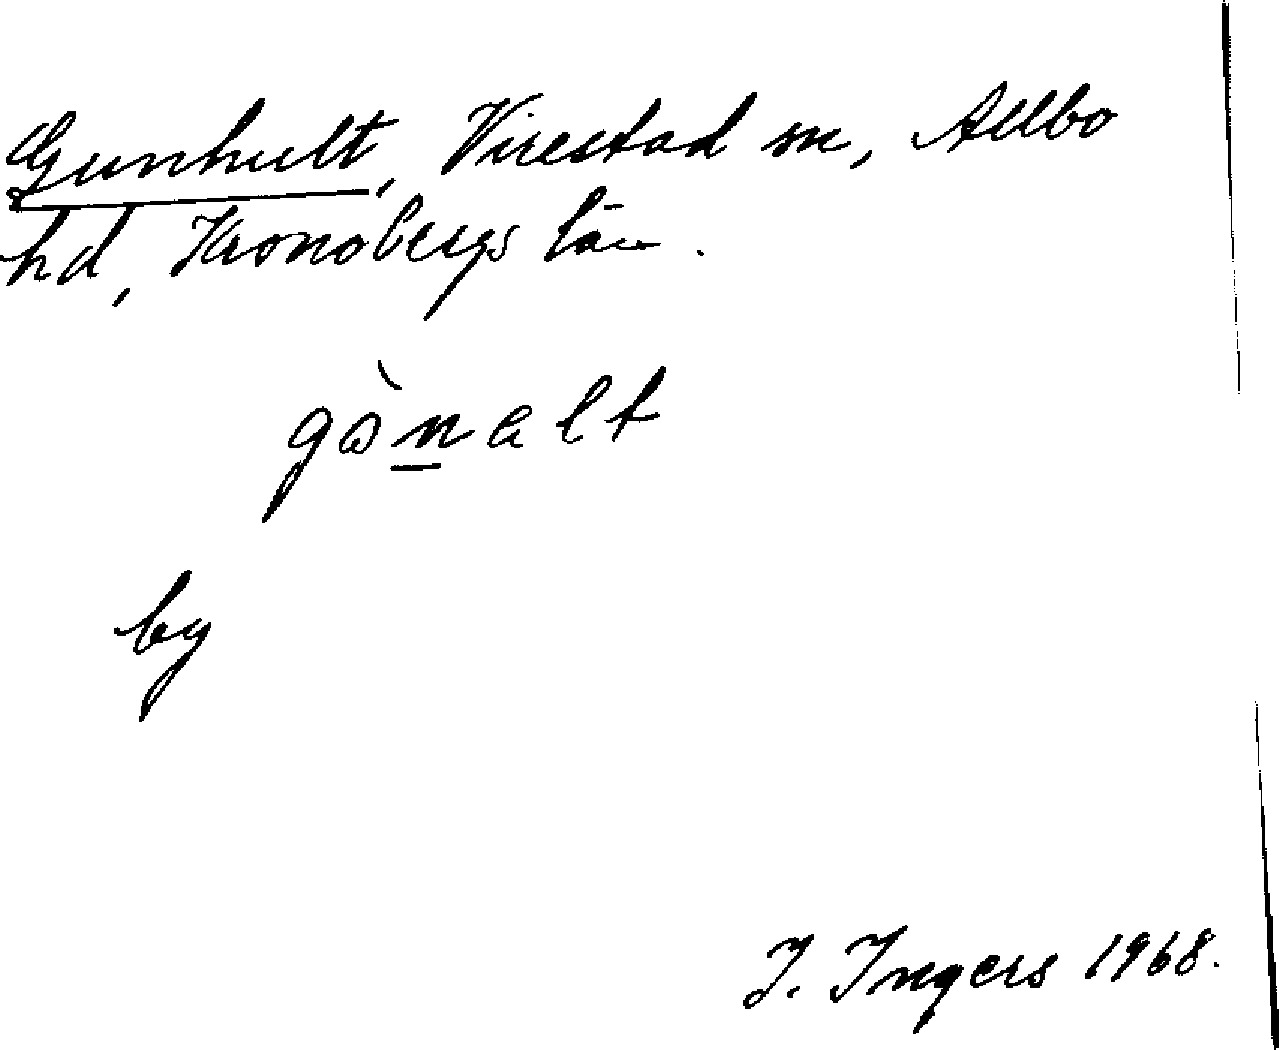 Gunhult, Virestad sn, Allbo
hd, Kronobergs län.
gònalt
by
I. Ingers 1968.